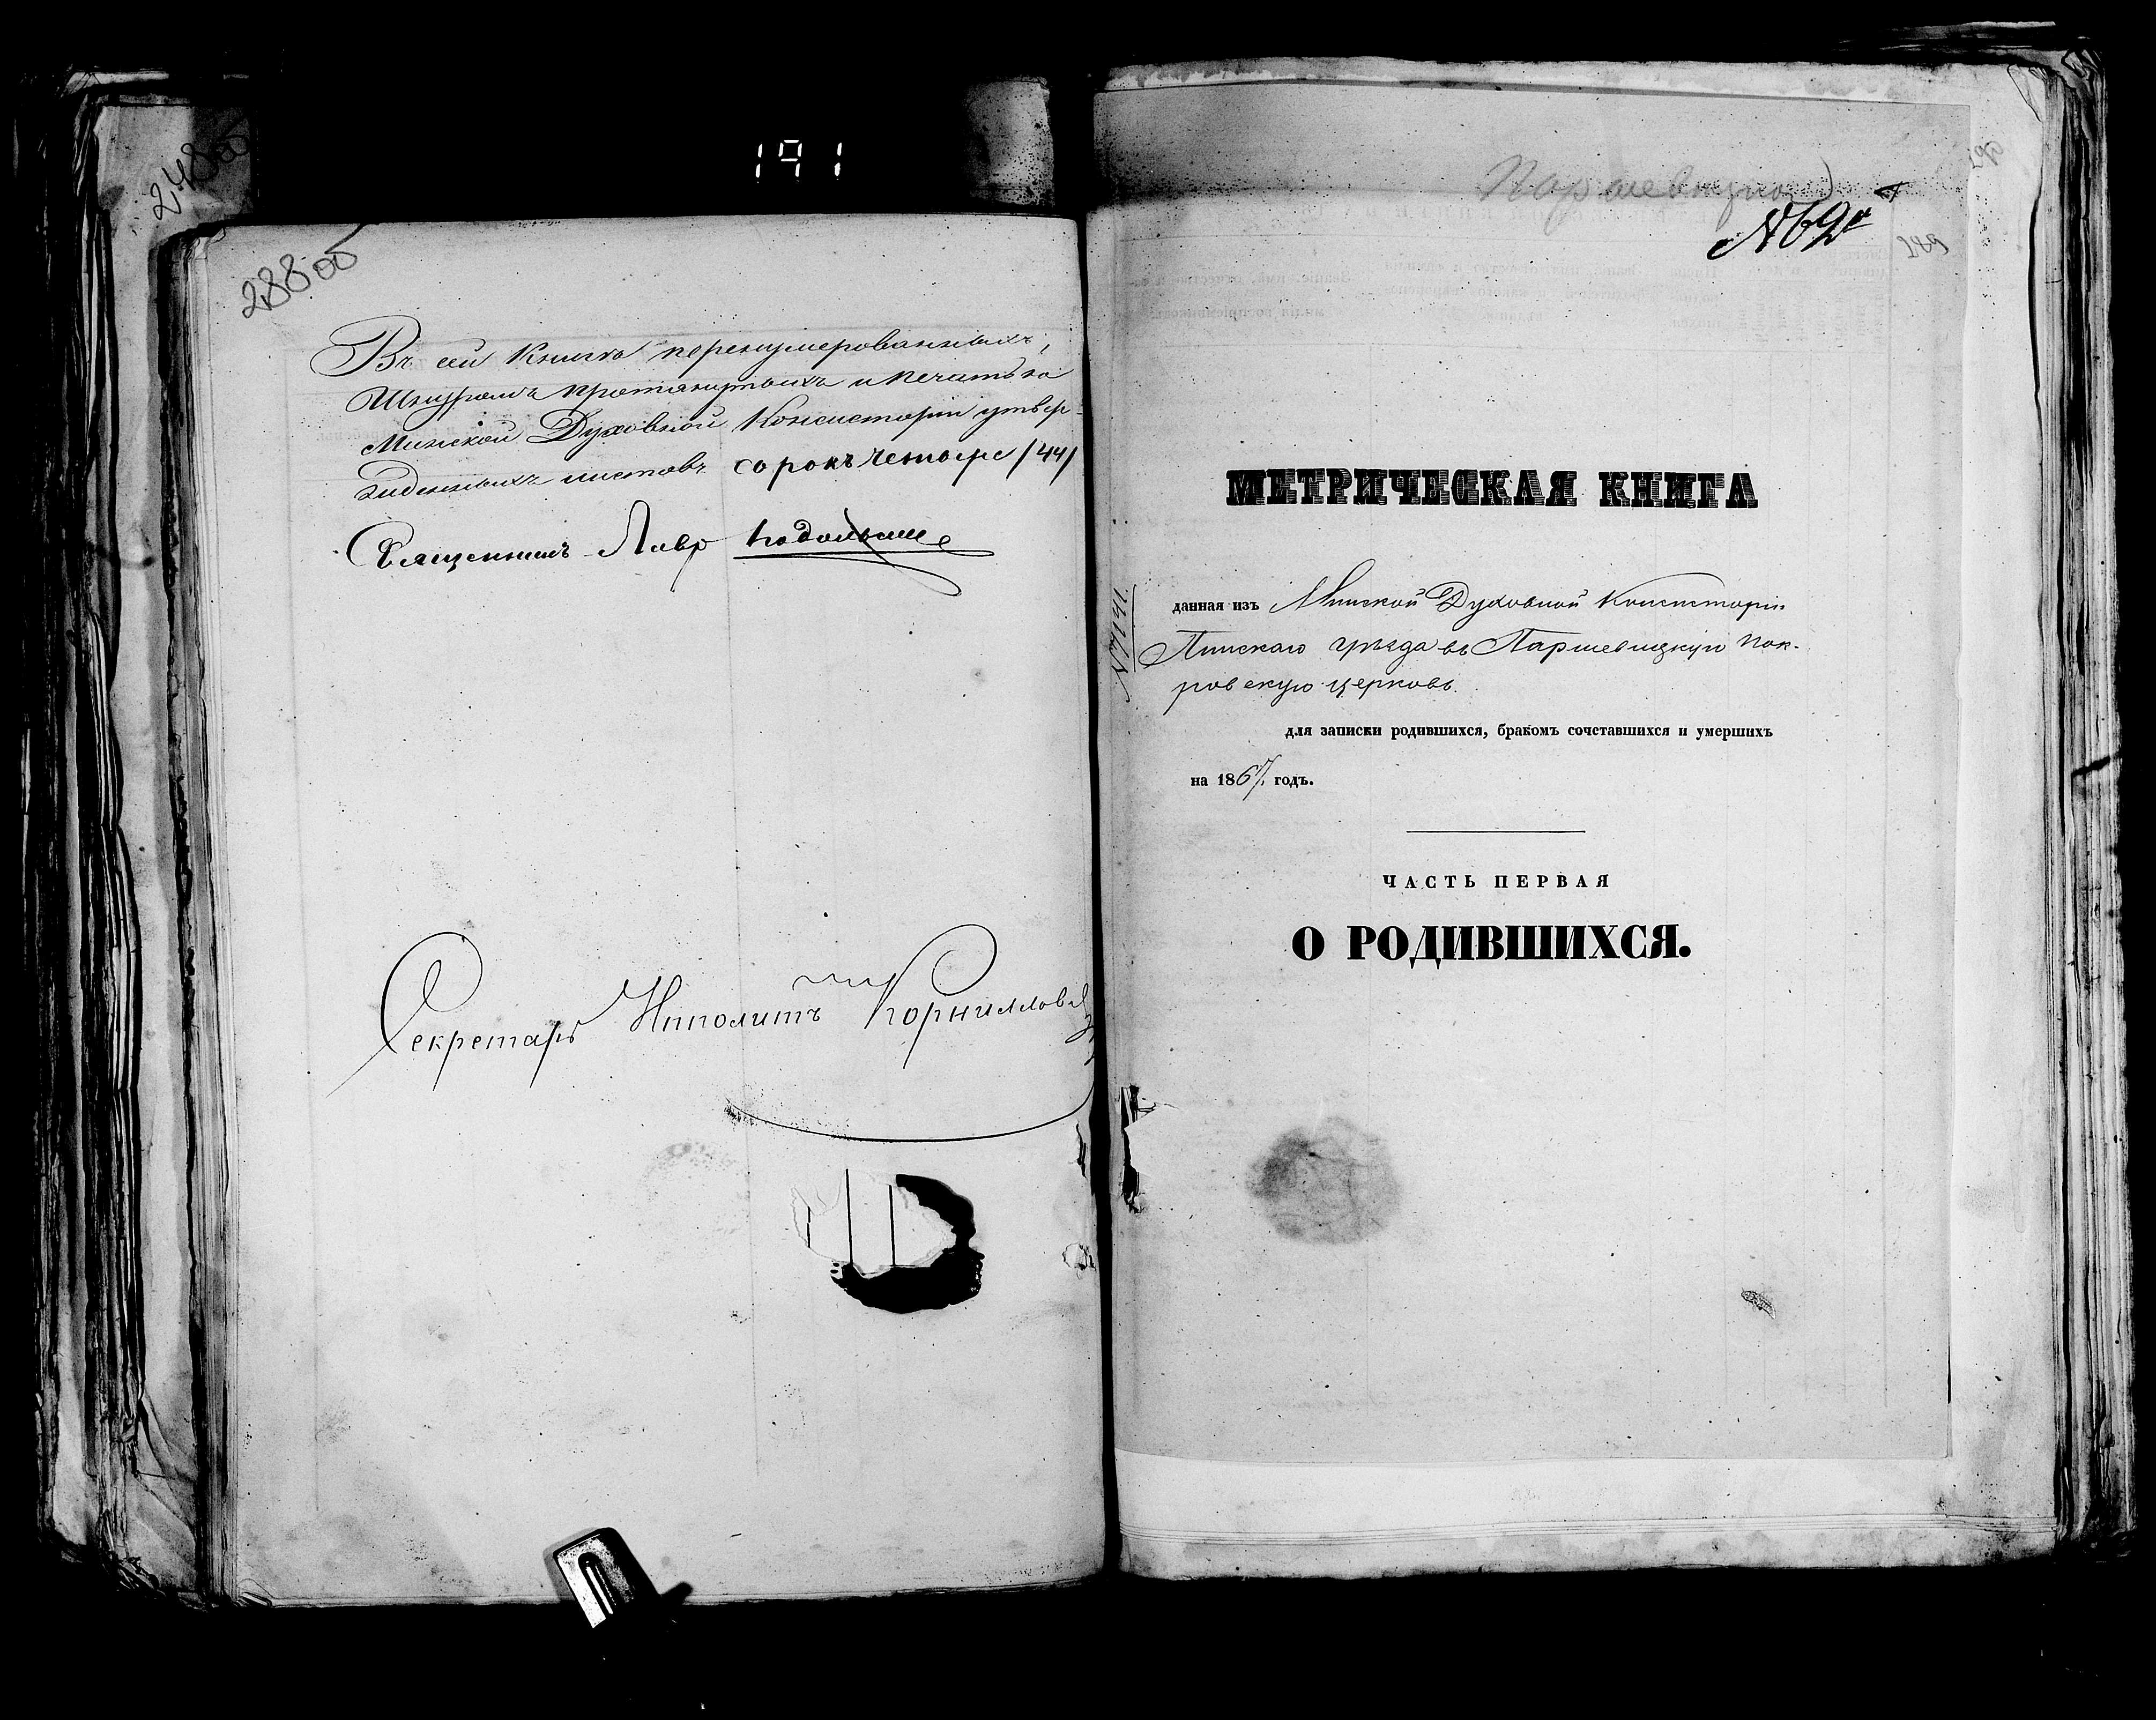 191
248об
288об
Въ сей книгѣ перенумерованныхъ,
Шнуромъ протянутыхъ и печатью
Минской Духовной Консисторіи утвер-
жденныхъ листовъ сорокъ четыре /44/
Священникъ Лавр
Секретарь Ипполитъ Корниловичъ
Паршевицкой
№ 69й
289
МЕТРИЧЕСКАЯ КНИГА
№ 7141.
данная изъ Минской Духовной Консисторіи
Пинскаго уѣзда въ Паршевицкую Пок-
ровскую церковь.
для записки родившихся, бракомъ сочетавшихся и умершихъ
на 1867 годъ.
ЧАСТЬ ПЕРВАЯ
О РОДИВШИХСЯ.